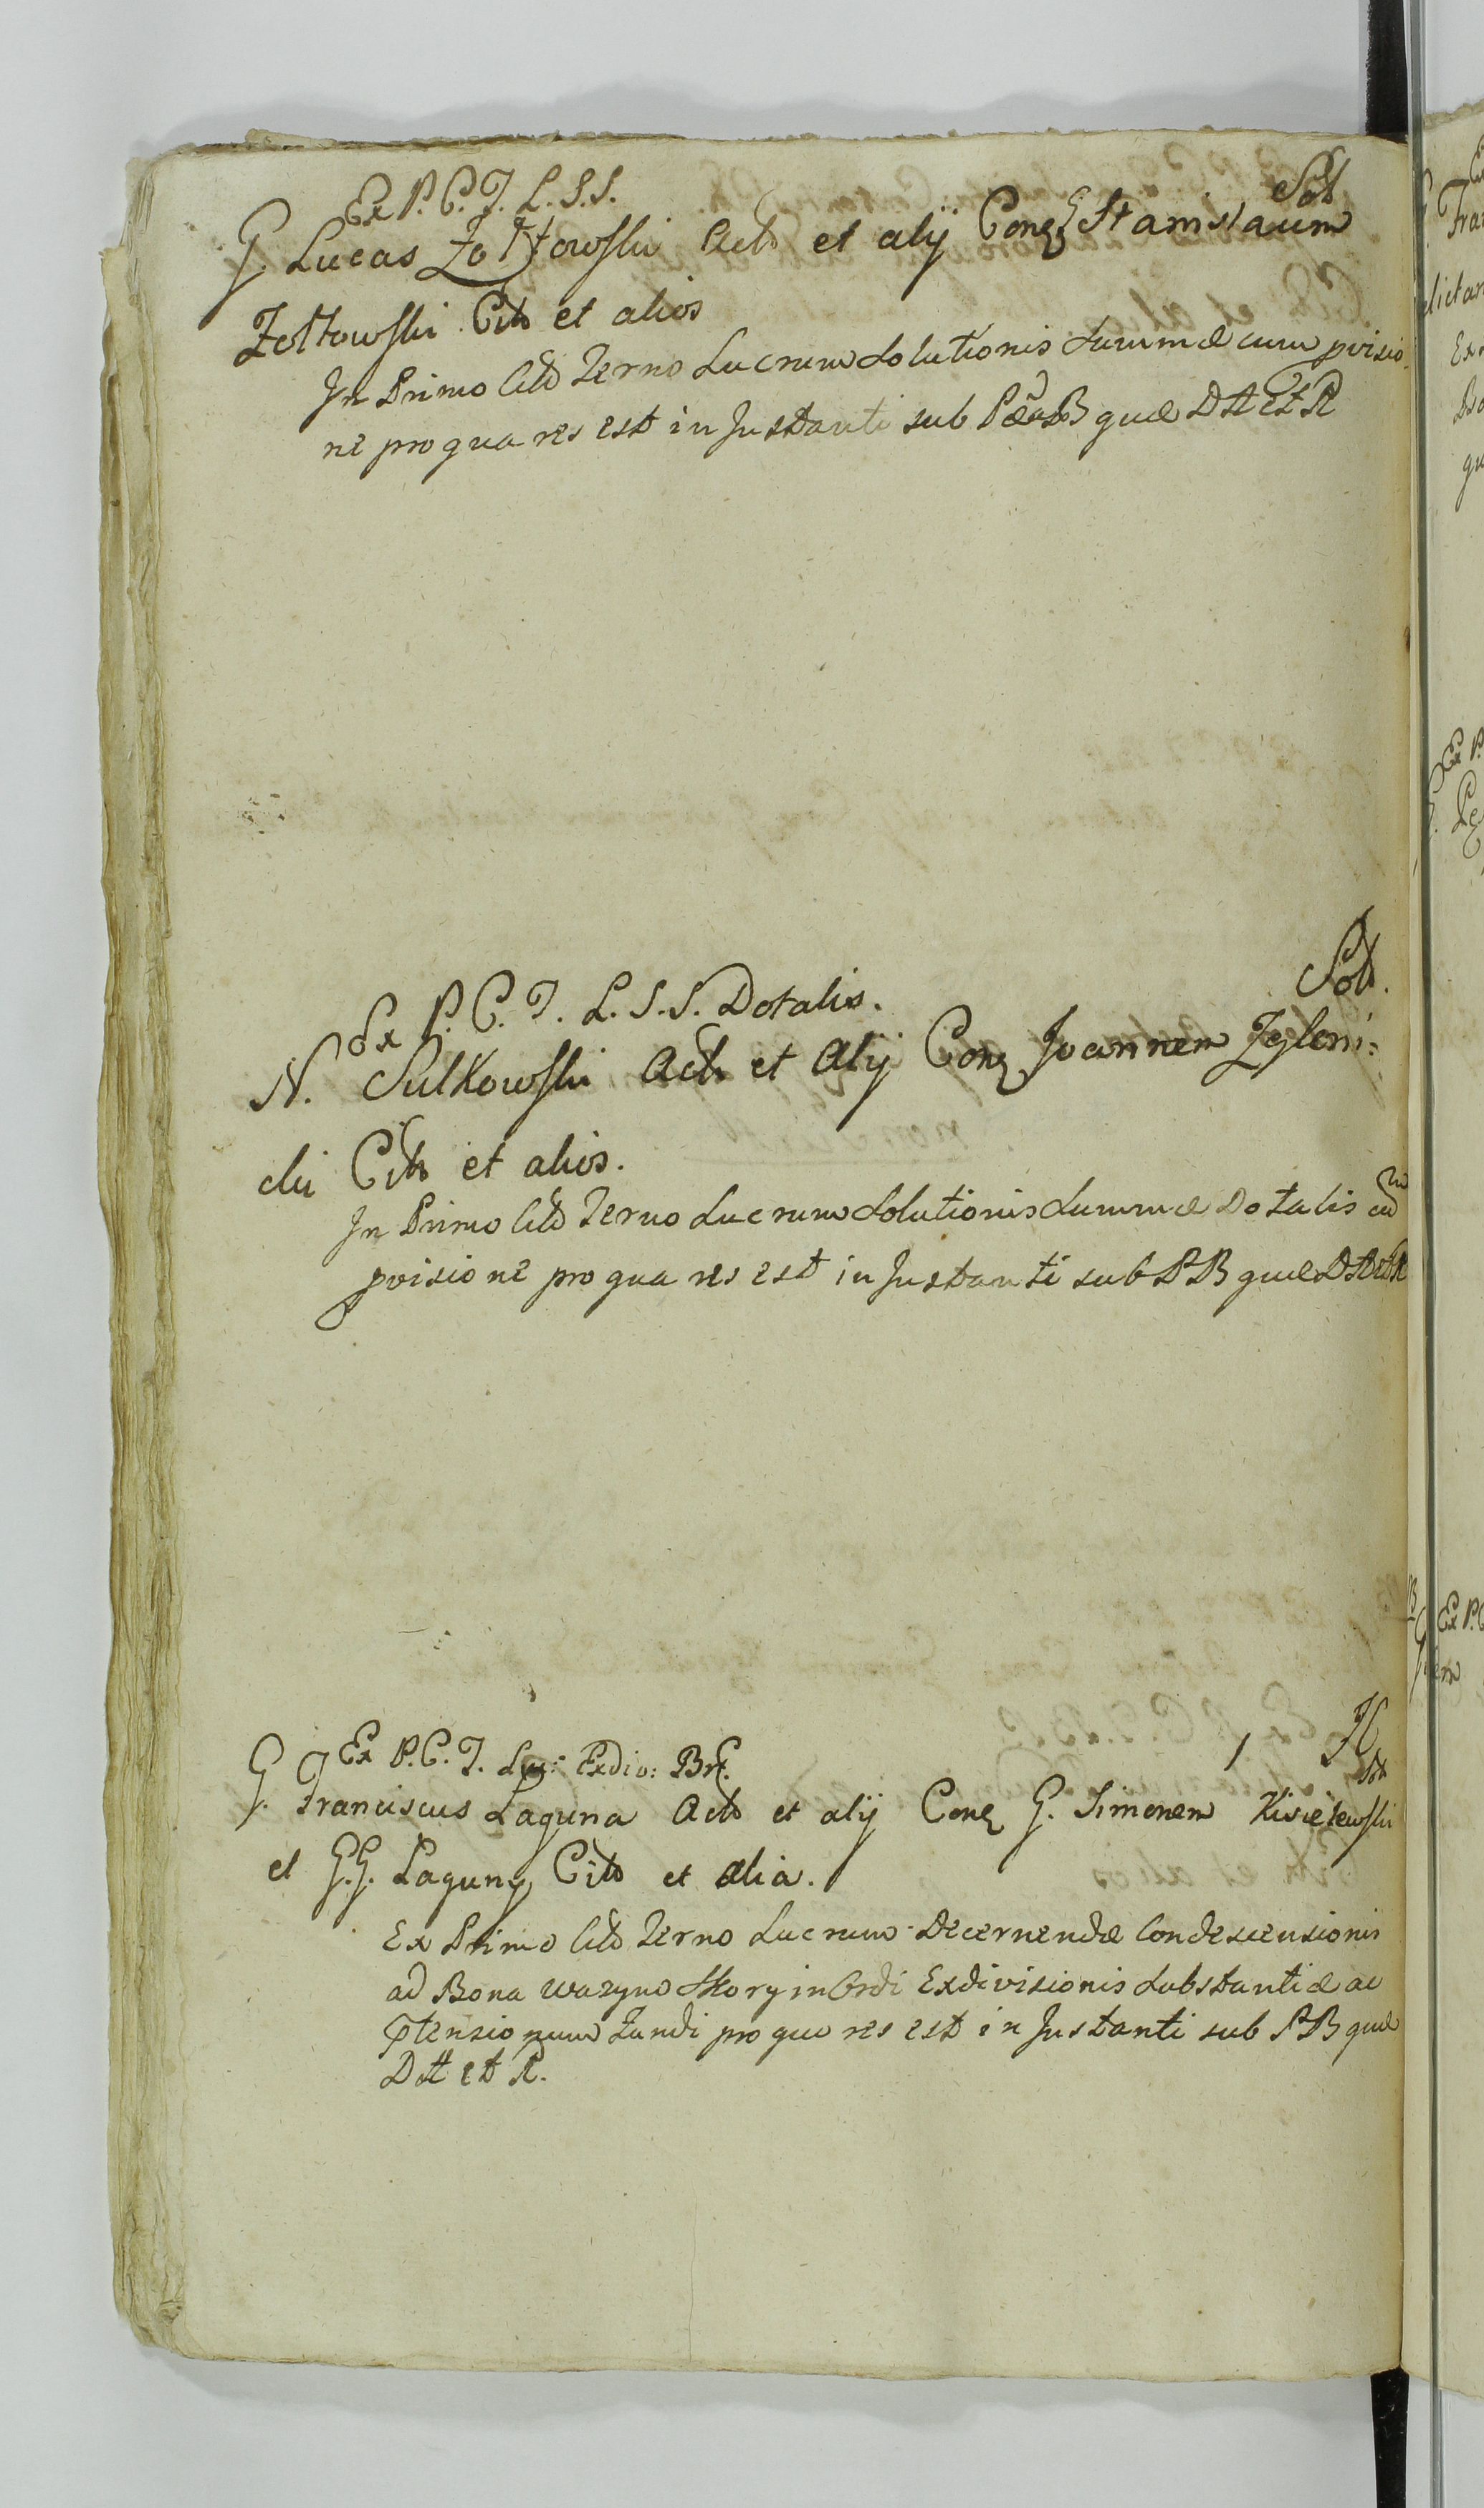 Ex P. C. T. L. S. S.
Sol
G Lucas Żołtowski Acto et alij Conq G Stanislaum
Zołtowski Citt et alios
In Primo Citt Terno Lucrum Solutionis Summæ cum pvisio
ne pro qua res est in Instanti sub quæ Dtt et R
Ex P. C. T. L. S. S. Dotalis.
Solt.
N. Sulkowski Acto et Alij Conq Joannem Zgleni-
cki Citt et alios.
In Primo Citt Terno Lucrum Solutionis Summæ Dotalis cum
pvisione pro qua res est in Instanti sub PB quæ Dtt et R
Ex P. C. T. Exdiv: Brt.
G. Franciscus Laguna Acto et alij Conq G. Simonem Kisielewski
et G.G. Laguny Citt et alia.
Ex Primo Citt Terno Lucrum Decernendæ Condescensionis
ad Bona Wazyno Skory in Ordi Exdivisionis Substantiæ ac
ptensionum Fundi pro quo res est in Instanti sub PB quæ
Dtt et R.